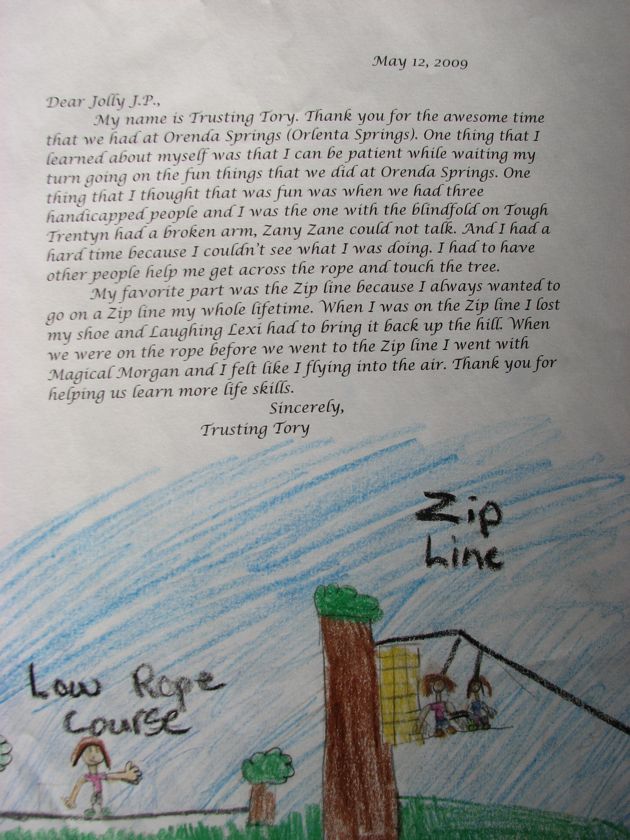 May 12, 2009
Dear Jolly J.P.,
My name is Trusting Tory. Thank you for the awesome time
that we had at Orenda Springs (Orlenta Springs). One thing that I
learned about myself was that I can be patient while waiting my
turn going on the fun things that we did at Orenda Springs. One
thing that I thought that was fun was when we had three
handicapped people and I was the one with the blindfold on Tough
Trentyn had a broken arm, Zany Zane could not talk. And I had a
hard time because I couldn't see what I was doing. I had to have
other people help me get across the rope and touch the tree.
My favorite part was the Zip line because I always wanted to
go on a Zip line my whole lifetime. When I was on the Zip line I lost
my shoe and Laughing Lexi had to bring it back up the hill. When
we were on the rope before we went to the Zip line I went with
Magical Morgan and I felt like I flying into the air. Thank you for
helping us learn more life skills.
Sincerely,
Trusting Tory
Zip
Line
Low Rope
Course